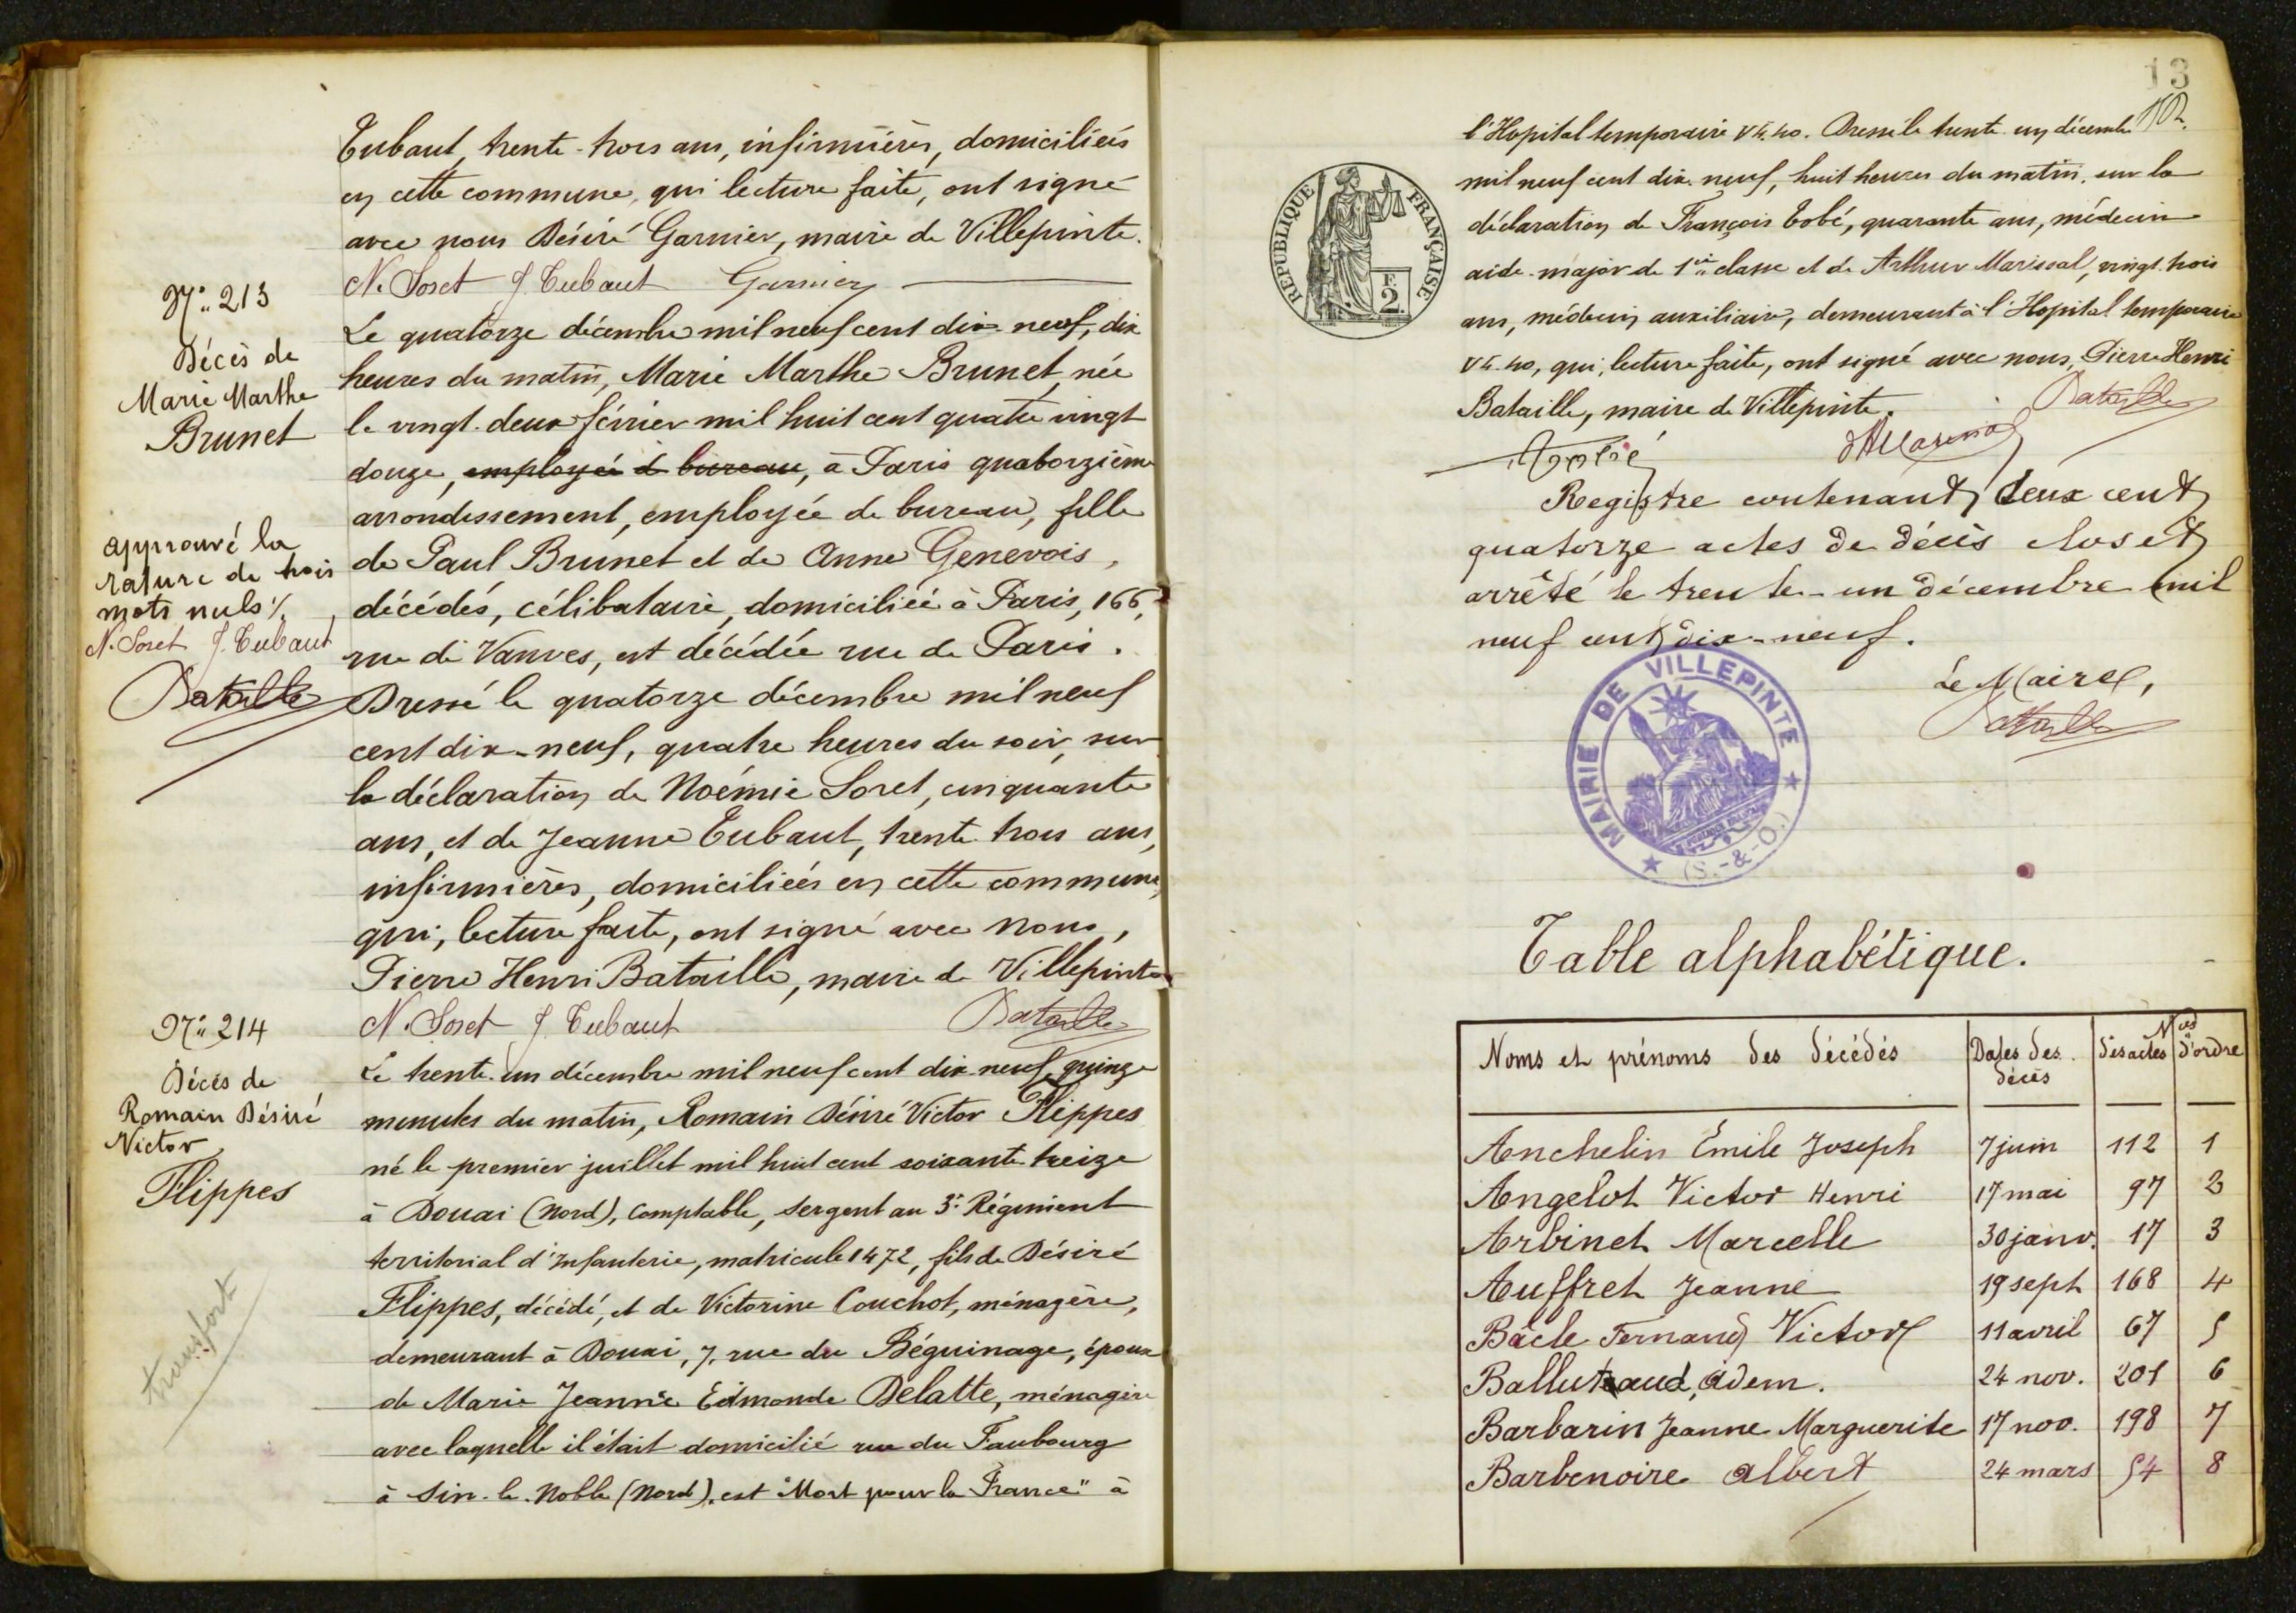 Tubaut, trente-trois ans, infirmières, domiciliées
en cette commune, qui lecture faite, ont signé
avec nous Désiré Garnier, maire de Villepinte.
N. Soret J. Tubaut Garnier
N° 213
Décès de
Marie Marthe
Brunet
Le quatorze décembre mil neuf cent dix-neuf, dix
heures du matin, Marie Marthe Brunet, née
le vingt-deux février mil huit cent quatre vingt
douze, employée de bureau, à Paris quatorzième
arrondissement, employée de bureau, fille
de Paul Brunet et de Anne Genevois,
décédés, célibataire, domiciliée à Paris, 166,
rue de Vanves, est décédée rue de Paris.
Dressé le quatorze décembre mil neuf
cent dix-neuf, quatre heures du soir, sur
la déclaration de Noémie Soret, cinquante
ans, et de Jeanne Tubaut, trente trois ans,
infirmières, domiciliées en cette commune,
qui, lecture faite, ont signé avec nous,
Pierre Henri Bataille, maire de Villepinte
N. Soret J. Tubaut Bataille
approuvé la
rature de trois
mots nuls /.
N. Soret J. Tubaut
Bataille
N° 214
Décès de
Romain Désiré
Victor
Flippes
transfort
Le trente-un décembre mil neuf cent dix-neuf, quinze
minutes du matin, Romain Désiré Victor Flippes
né le premier juillet mil huit cent soixante-treize
à Douai (Nord), comptable, sergent au 3e Régiment
territorial d'Infanterie, matricule 1472, fils de Désiré
Flippes, décédé, et de Victorine Couchot, ménagère,
demeurant à Douai, 7, rue du Béguinage, époux
de Marie Jeanne Edmonde Delatte, ménagère
avec laquelle il était domicilié rue du Faubourg
à Sin-le-Noble (Nord), est "Mort pour la France" à
13
l'Hopital temporaire V.G. 40. Dressé le trente-un décembre
mil neuf cent dix-neuf, huit heures du matin, sur la
déclaration de François Tobé, quarante ans, médecin
aide-major de 1ère classe et de Arthur Marissal, vingt-trois
ans, médecin auxiliaire, demeurant à l'Hopital temporaire
V.G. 40, qui, lecture faite, ont signé avec nous, Pierre Henri
Bataille, maire de Villepinte.
Bataille
RÉPUBLIQUE FRANÇAISE
F.
2
Registre contenant deux cent
quatorze actes de décès clos et
arrêté le trente-un décembre mil
neuf cent dix-neuf.
Le Maire,
Bataille
MAIRIE DE VILLEPINTE
(S.-&-O.)
Table alphabétique.
Noms et prénoms des décédés Dates des décès Nos des actes d'ordre
Anchelin Emile Joseph 7 juin 112 1
Angelot Victor Henri 17 mai 97 2
Arbinet Marcelle 30 janv. 17 3
Auffret Jeanne 19 sept 168 4
Bâcle Fernand Victor 11 avril 67 5
Balluteaud, Adem. 24 nov. 201 6
Barbarin Jeanne Marguerite 17 nov. 198 7
Barbenoire Albert 24 mars 54 8